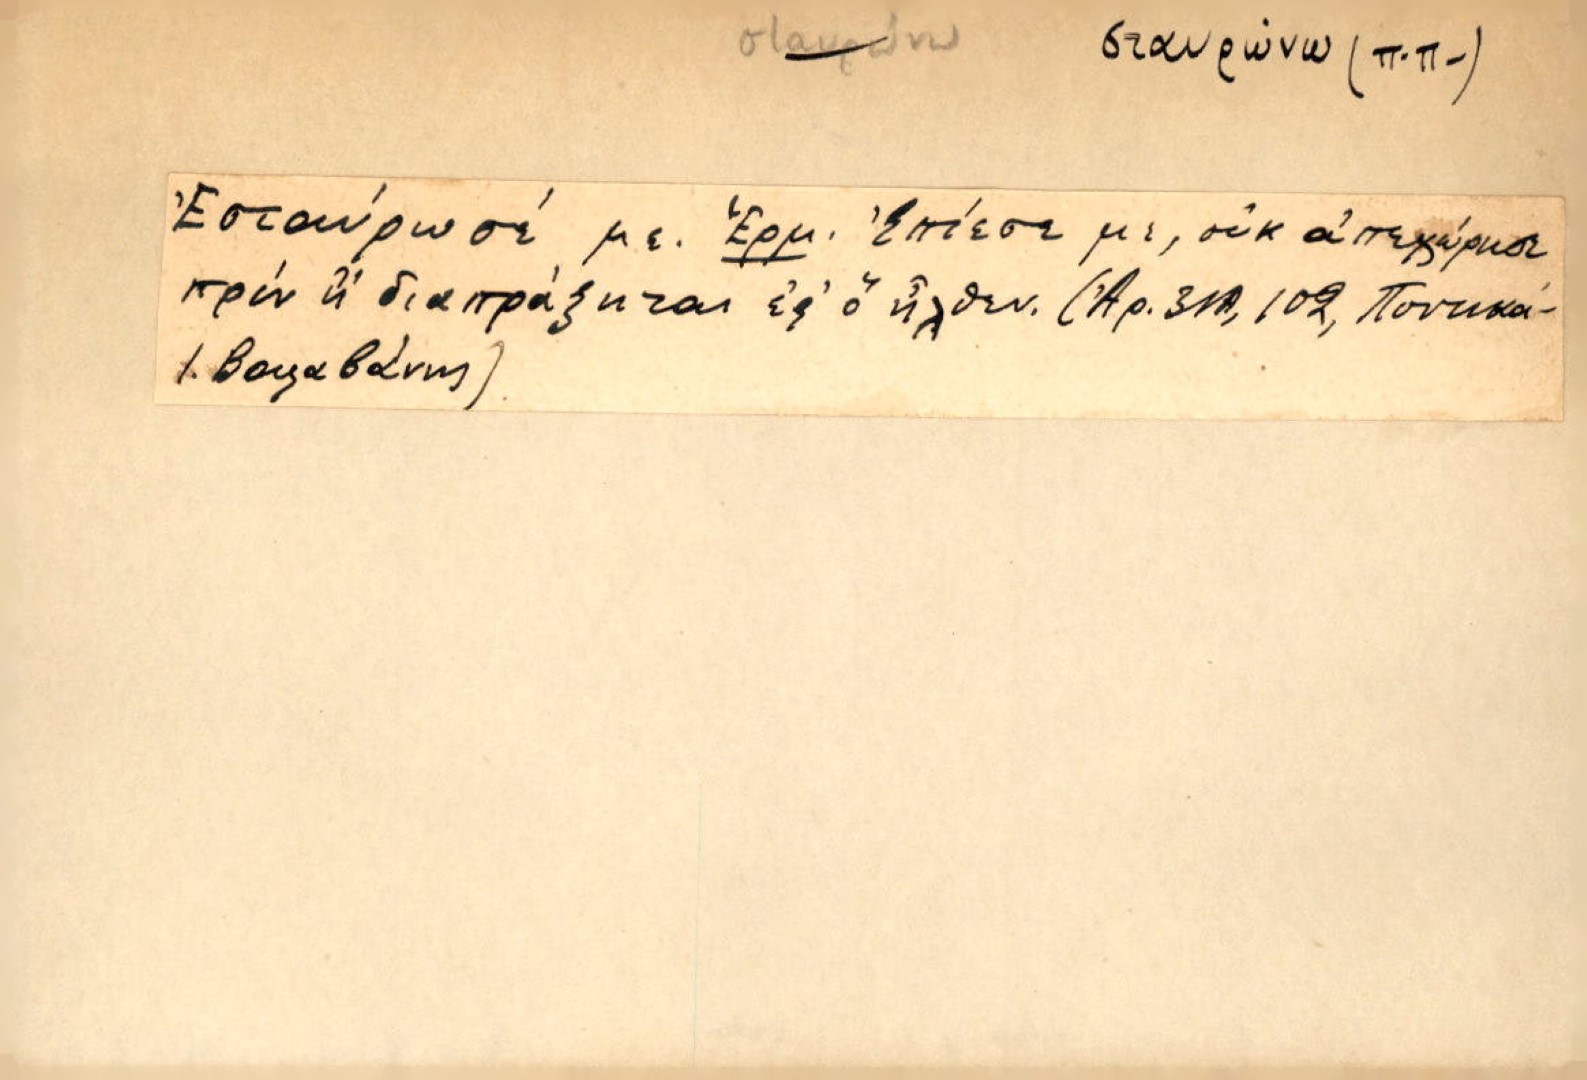 σταυρώνω σταυρώνω (π.π-)
Ἐσταύρωσέ με. Ἑρμ. Ἐπίεσέ με, οὐκ ἀπεχώρησε
πρίν ἤ διαπράξηται ἐφ' ὅ ἦλθεν. (Ἀρ. 102, Ποντικά-
Ι. Βαλαβάνης)